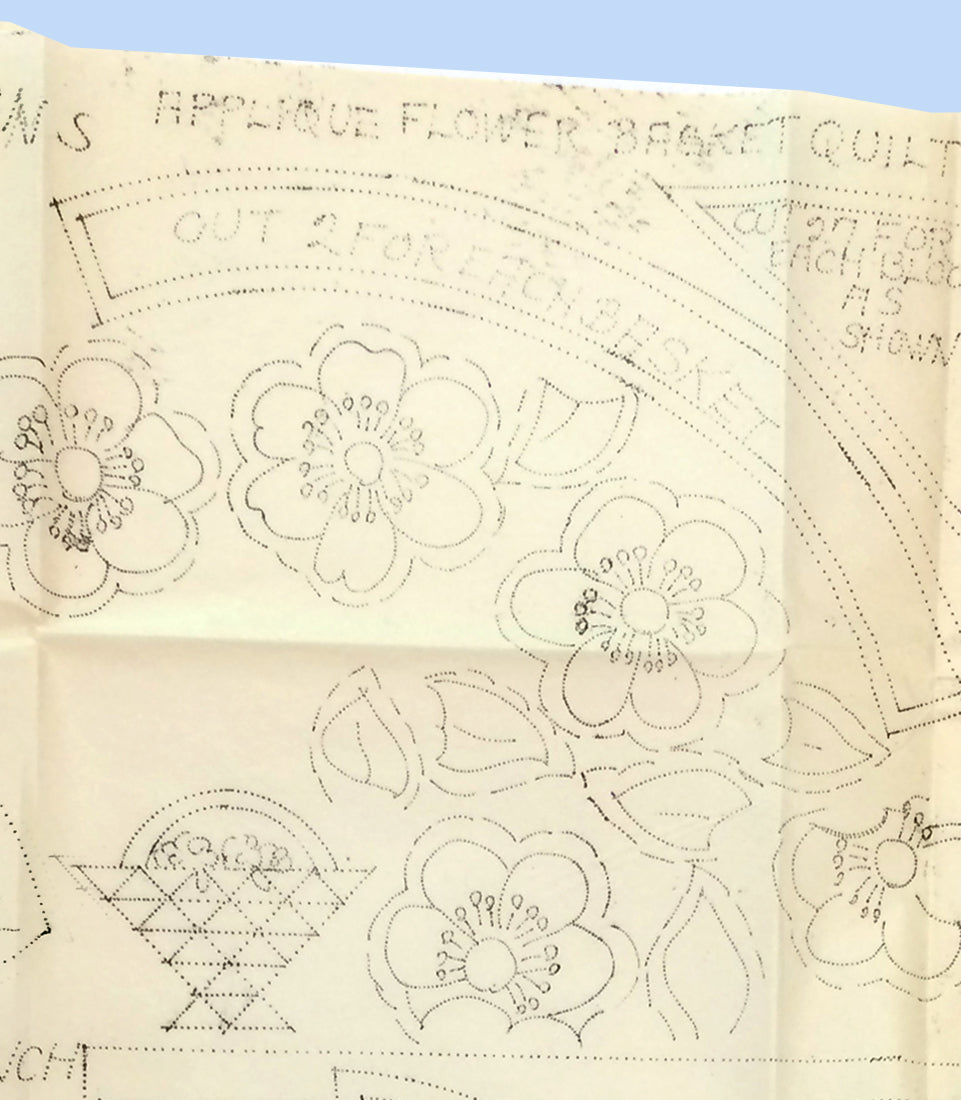 S APPLIQUE FLOWER BASKET QUILT
CUT 2 FOR EACH BASKET
CUT 27 FOR
EACH BLOC
AS
SHOWN
UCH